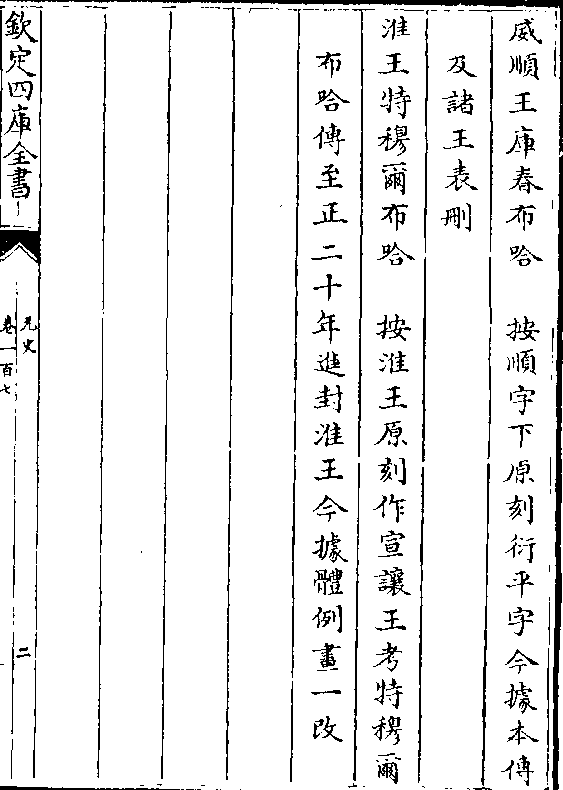 威順王庫春布哈　按順字下原刻衍平字今據本傳
及諸王表刪
淮王特穆爾布哈　按淮王原刻作宣讓王考特穆爾
布哈傳至正二十年進封淮王今據體例畫一改
欽定四庫全書
元史
卷一百七
二